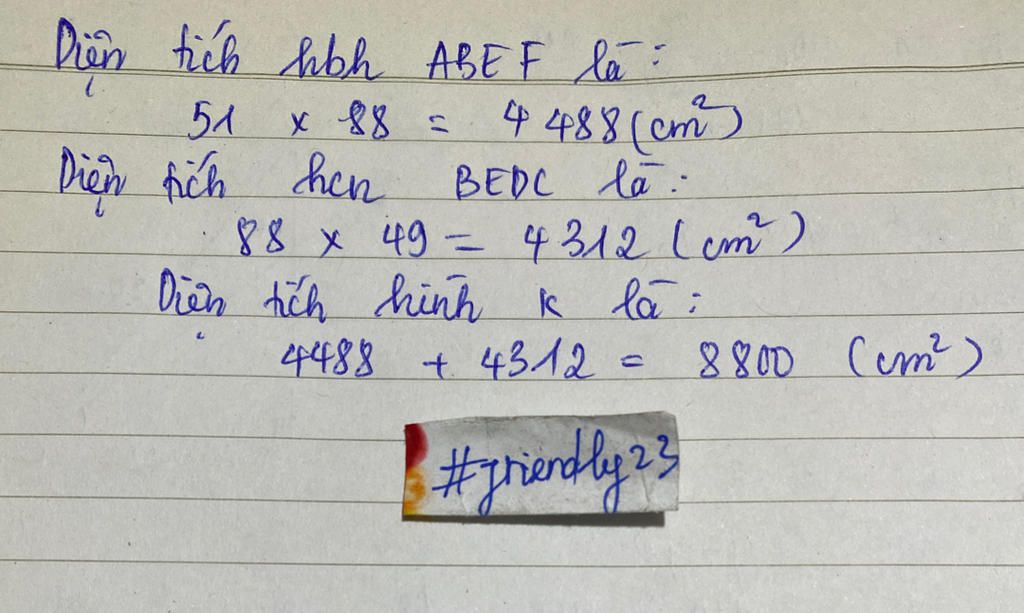 Diện tích hbh ABEF là:
51 x 88 = 4 488 (cm²)
Diện tích hcn BEDC là:
88 x 49 = 4312 (cm²)
Diện tích hình K là:
4488 + 4312 = 8800 (cm²)
#friendly23